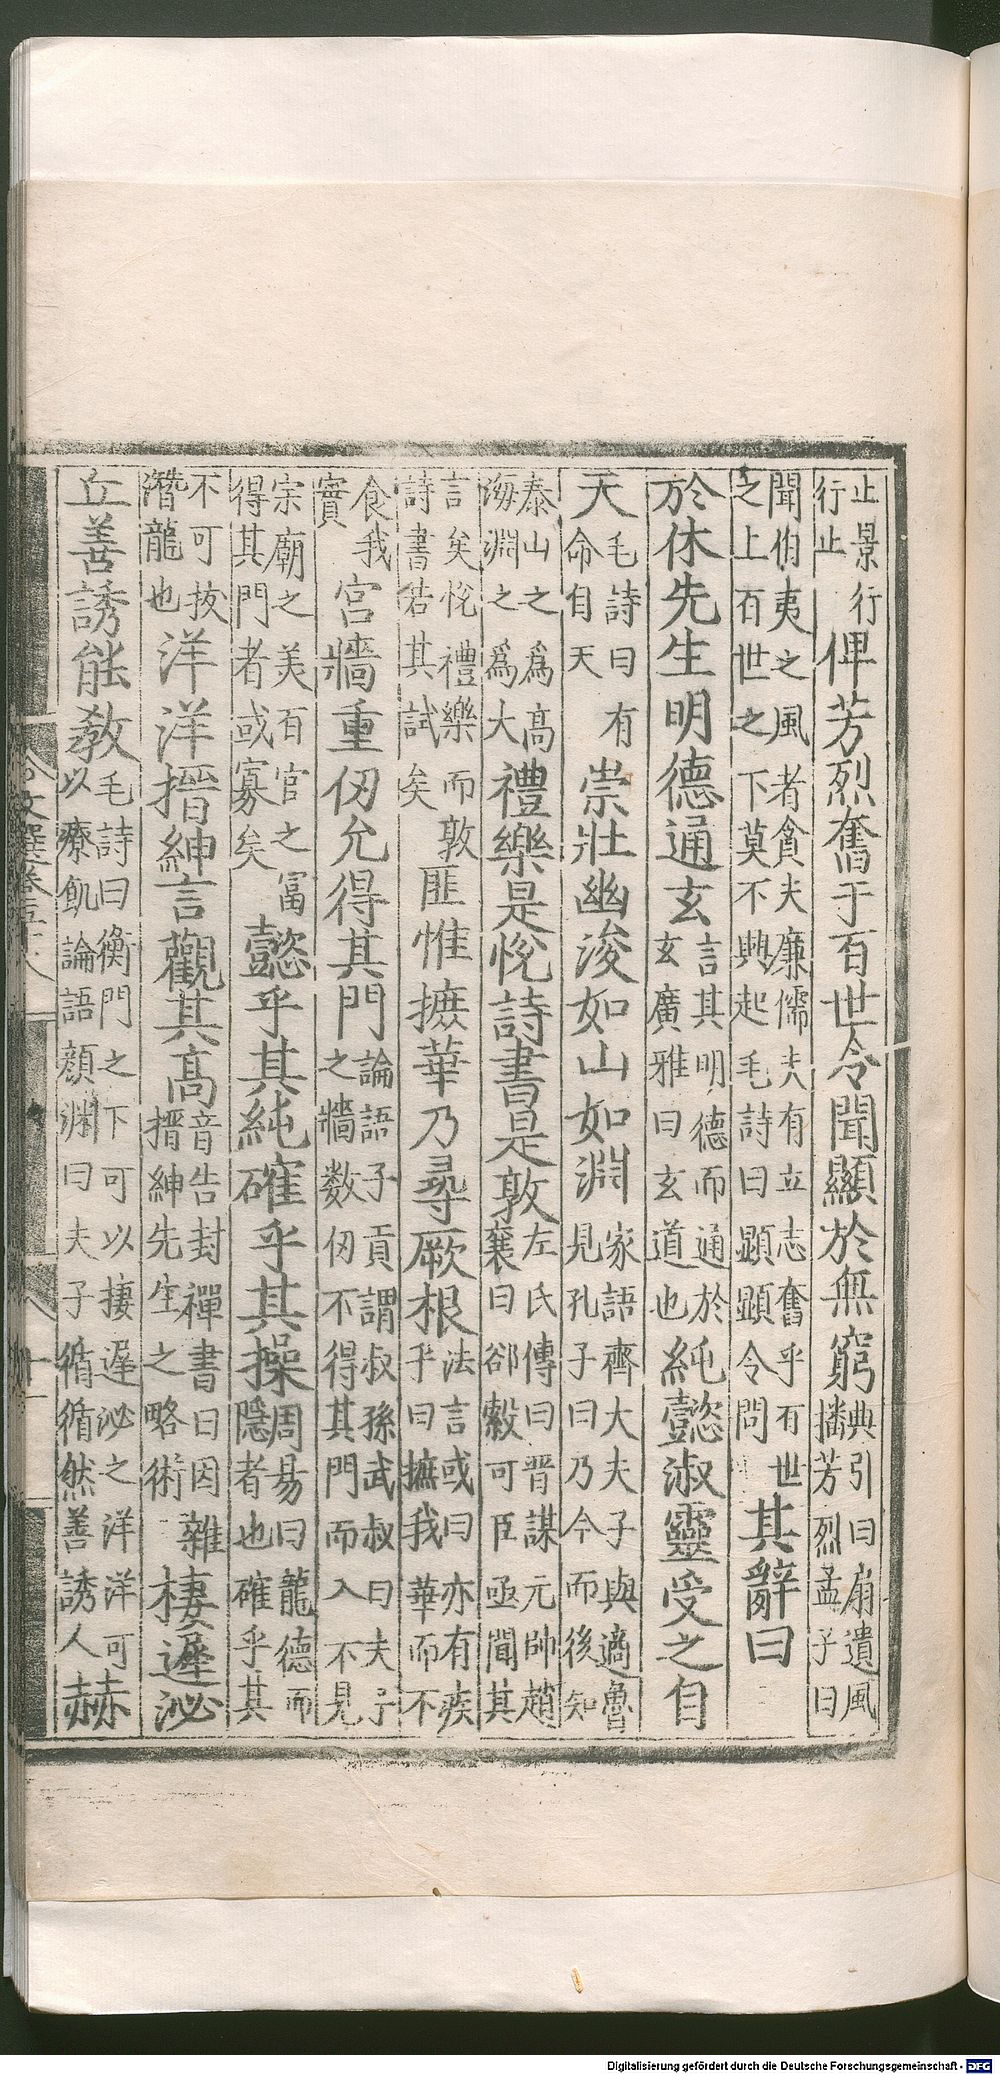 止景行行止俾芳烈奮于百世令聞顯於無窮典引曰扇遺風播芳烈孟子曰
聞伯夷之風者貪夫廉儒夫有立志奮乎百世之上百世之下莫不興起毛詩曰顕顕令問其辭曰
於休先生明德通玄言其明德而通於玄廣雅曰玄道也純懿淑靈受之自
天毛詩曰有命自天崇壯幽浚如山如淵家語齊大夫子與適魯見孔子曰乃今而後知
泰山之爲高海淵之爲大禮樂是悅詩書是敦左氏傳曰晋謀元帥趙襄曰郤縠可臣亟聞其
言矣悅禮樂而敦詩書若其試矣匪惟摭華乃尋厥根法言或曰亦有疾乎曰摭我華而不
食我實宮牆重仞允得其門論語子貢謂叔孫武叔曰夫子之牆数仞不得其門而入不見
宗廟之美百官之冨得其門者或寡矣懿乎其純確乎其操周昜曰龍德而隱者也確乎其
不可拔潛龍也洋洋搢紳言觀其高音告封禪書曰因雜搢紳先生之略術棲遲泌
丘善誘能教毛詩曰衡門之下可以棲遲泌之洋洋可以療飢論語顔淵曰夫子循循然善誘人赫
文選卷五十八
十一
Digitalisierung gefördert durch die Deutsche Forschungsgemeinschaft - DFG